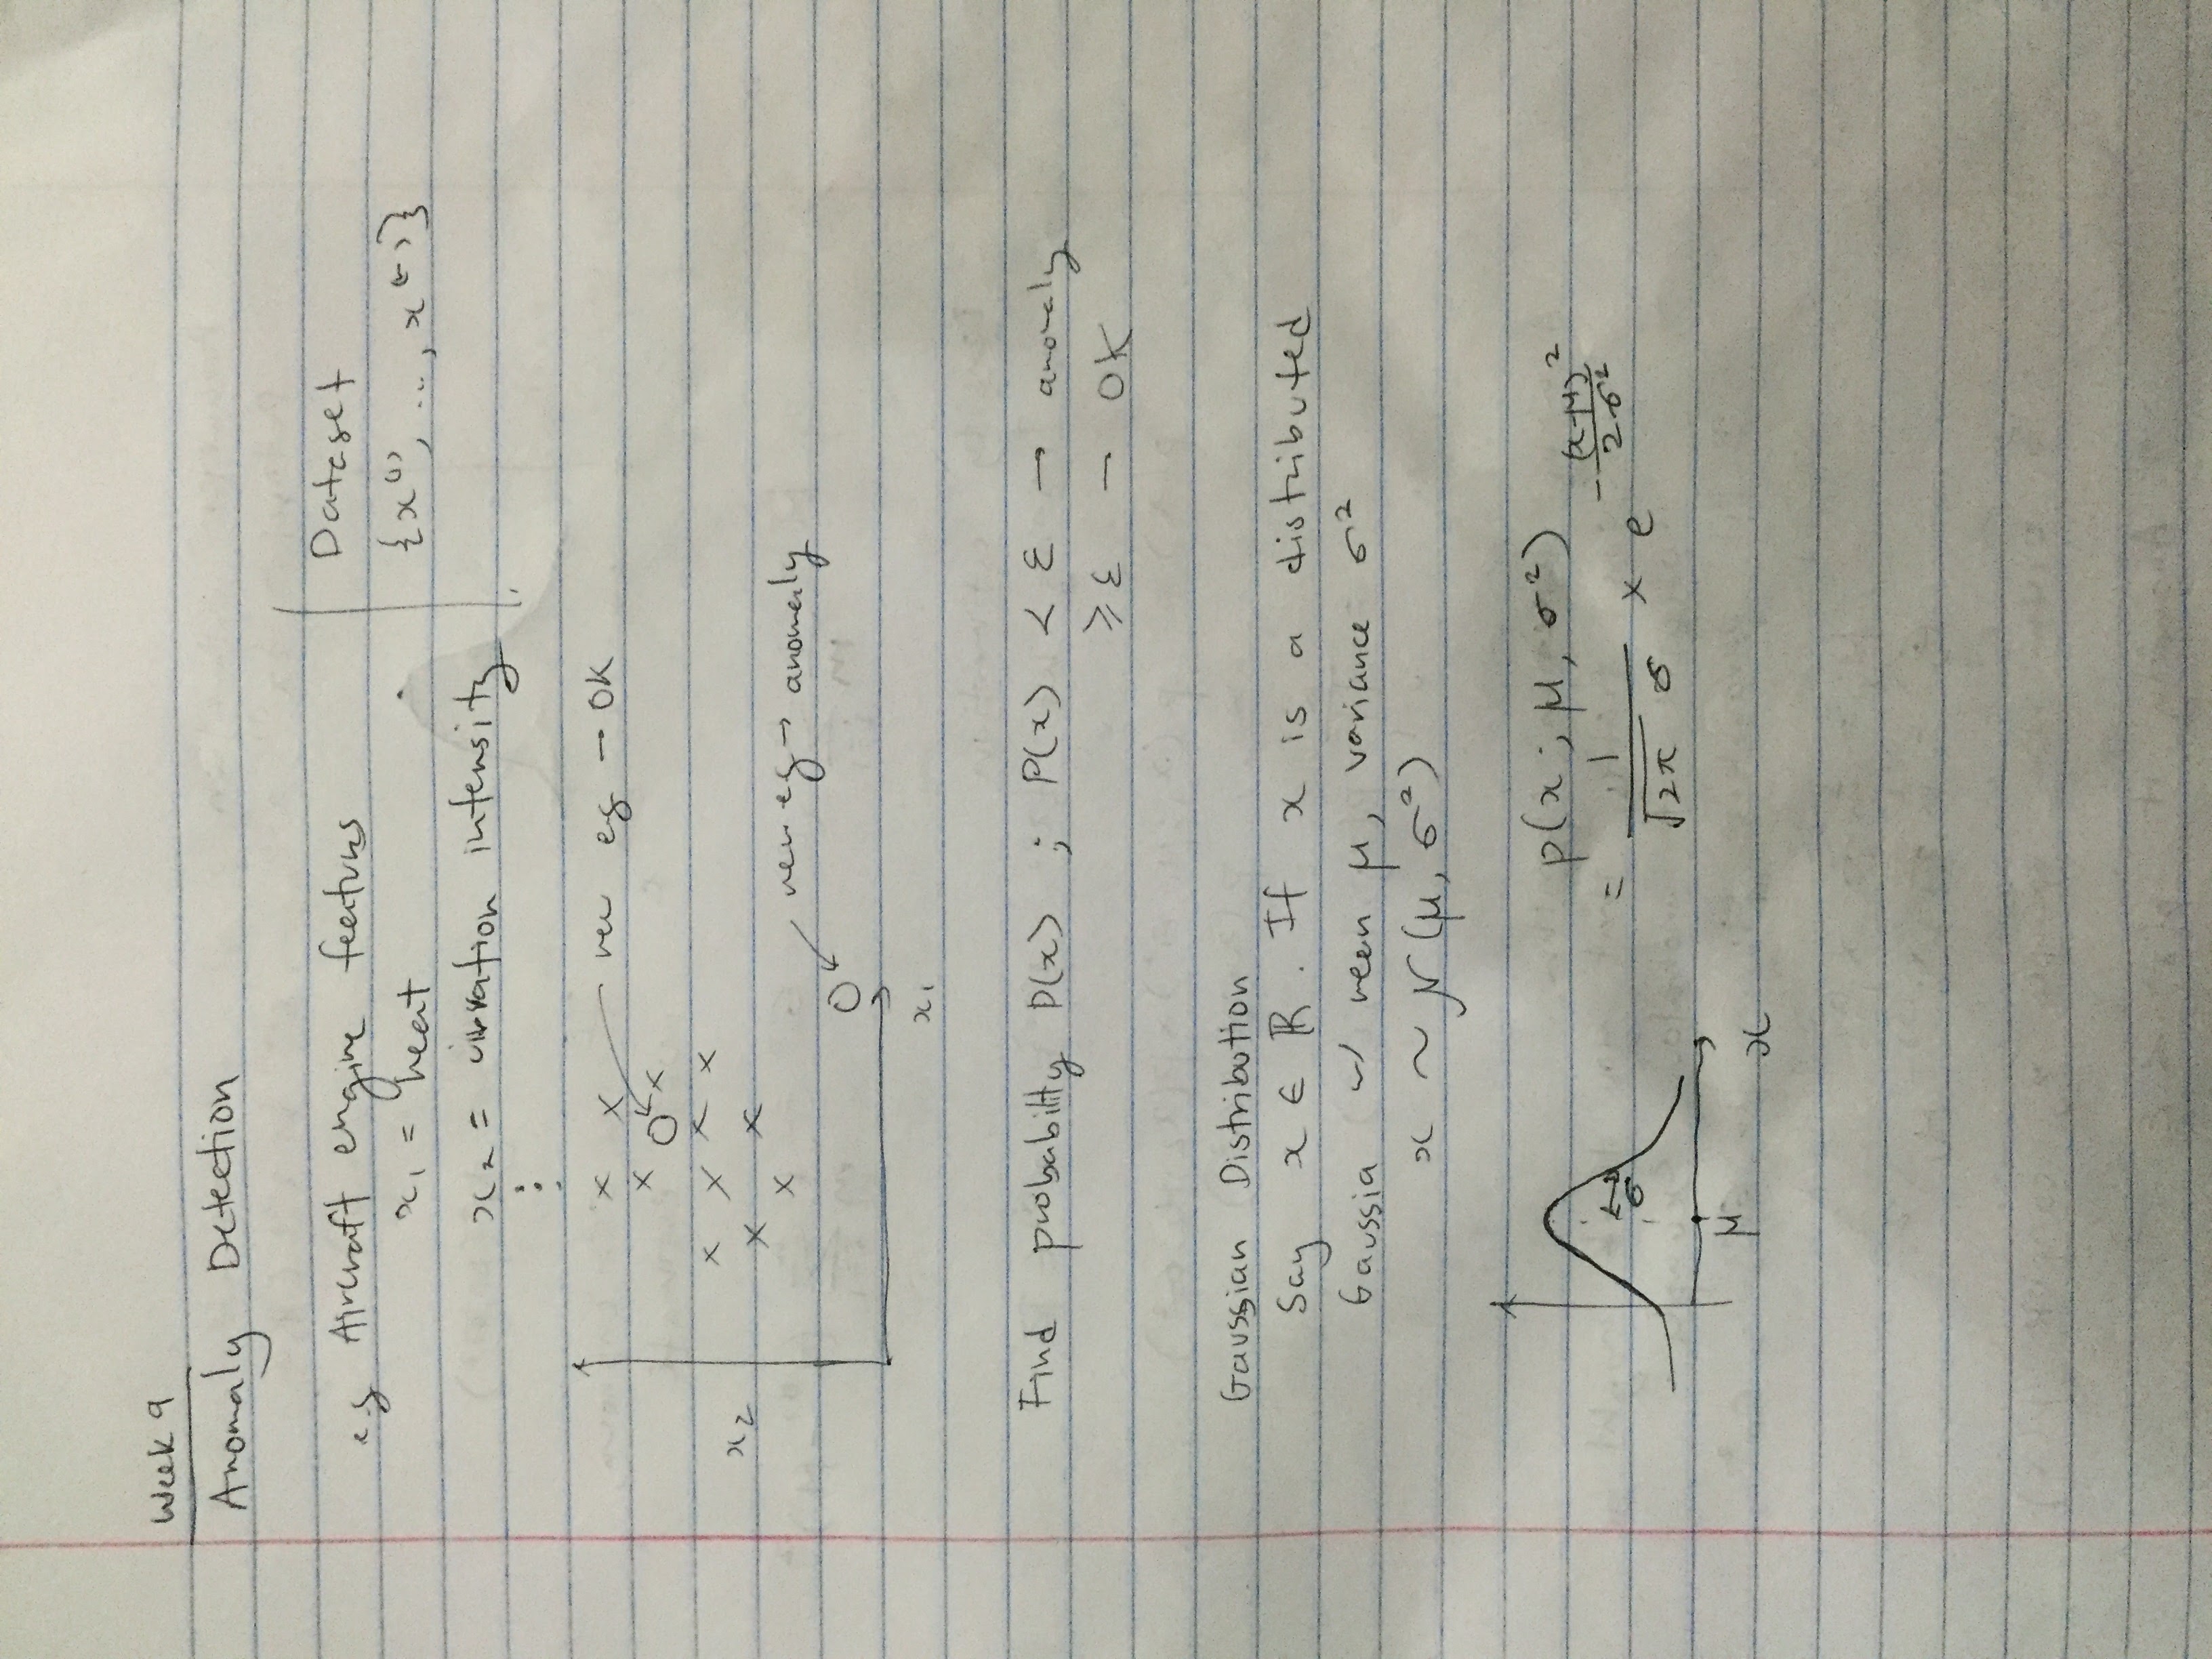 Week 9
Anomaly Detection
e.g Aircraft engine features
x₁ = heat
x₂ = vibration intensity
⋮
Dataset
{x⁽¹⁾, ..., x⁽ᵐ⁾}
new eg → OK
x₂
new eg → anomaly
x₁
Find probability P(x) ; P(x) < ε → anomaly
≥ ε → OK
Gaussian Distribution
Say x ∈ ℝ. If x is a distributed
Gaussia w/ mean μ, variance σ²
x ~ N(μ, σ²)
σ
μ
x
p(x; μ, σ²)
= 1/(√2π σ) × e^(-(x-μ)²/2σ²)